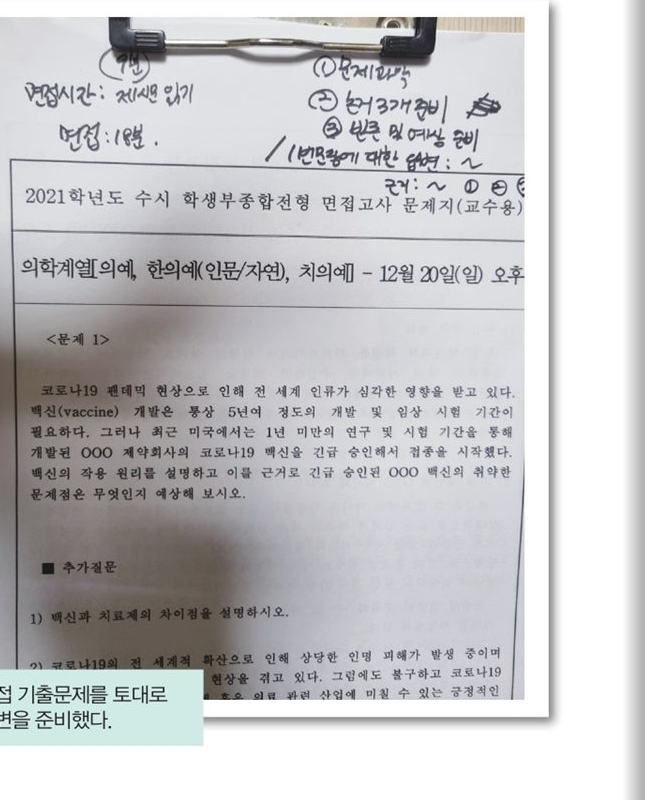 면접시간: 제시문 읽기
면접: 18분.
① 문제파악
② 논거 3개 준비
③ 반론 및 예상 준비
/ 1번문항에 대한 답변: ~
근거: ~ ① ②
2021학년도 수시 학생부종합전형 면접고사 문제지(교수용)
의학계열[의예, 한의예(인문/자연), 치의예] - 12월 20일(일) 오후
<문제 1>
코로나19 팬데믹 현상으로 인해 전 세계 인류가 심각한 영향을 받고 있다.
백신(vaccine) 개발은 통상 5년여 정도의 개발 및 임상 시험 기간이
필요하다. 그러나 최근 미국에서는 1년 미만의 연구 및 시험 기간을 통해
개발된 OOO 제약회사의 코로나19 백신을 긴급 승인해서 접종을 시작했다.
백신의 작용 원리를 설명하고 이를 근거로 긴급 승인된 OOO 백신의 취약한
문제점은 무엇인지 예상해 보시오.
■ 추가질문
1) 백신과 치료제의 차이점을 설명하시오.
2) 코로나19의 전 세계적 확산으로 인해 상당한 인명 피해가 발생 중이며
현상을 겪고 있다. 그럼에도 불구하고 코로나19
혹은 의료 관련 산업에 미칠 수 있는 긍정적인
접 기출문제를 토대로
변을 준비했다.